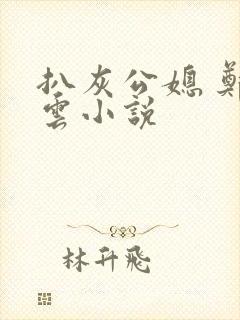 扒灰公媳 鄭
雲小說
林升飛